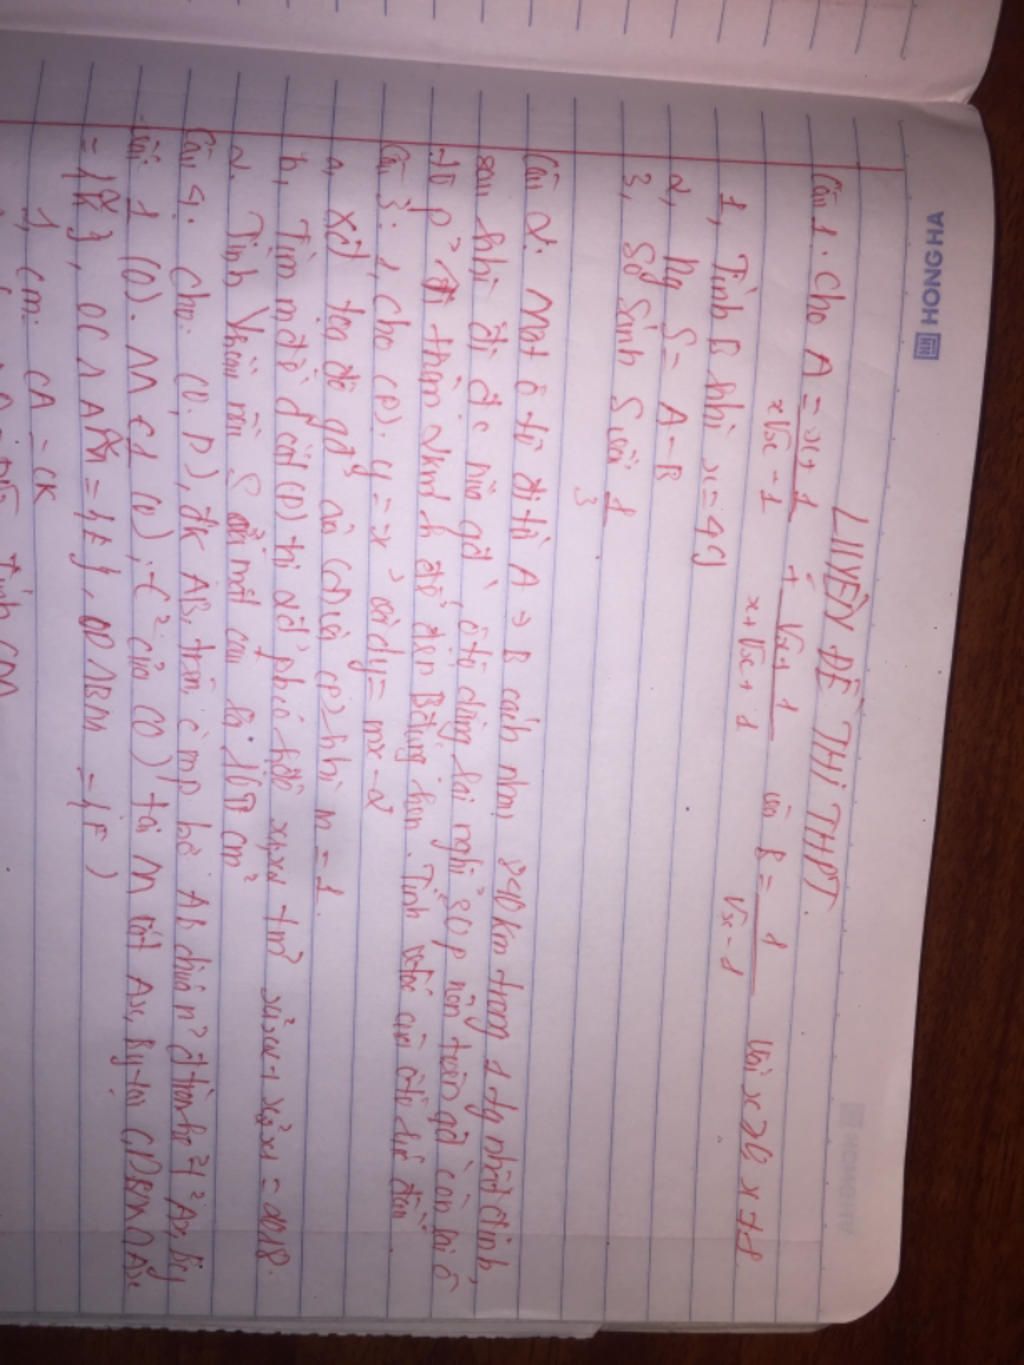 HONG HA
LUYỆN ĐỀ THI THPT.
Câu 1. Cho A = x+1 / x√x - 1 + √x+1 / x+√x+1 và B = 1 / √x-1 với x≥0 x≠1
1, Tính B khi x=49
2, Rg S= A-B
3, So sánh S với 1/3
Câu 2. Một ô tô đi từ A → B cách nhau 240km trong 1 tg nhất định,
sau khi đi đc nửa qđ, ô tô dừng lại nghỉ 30p nên trên qđ còn lại ô
tô p² đi thêm 2km/h để đến B đúng hẹn. Tính vtốc của ô tô lúc đầu.
Câu 3: 1, cho (P): y=x² và dy= mx-2
a, Xđ tọa độ gđ² của (d) và (P) khi m=1.
b, Tìm m để d cắt (P) tại 2 đ² phân biệt x₁,x₂ t/m² x₁²x₂+x₂²x₁=2018.
2. Tính S mặt cầu là 16π cm²
Câu 4. Cho (O,R), đk AB, trên c mp bờ AB chứa n² đtròn kẻ 2 t² Ax, By
với (O). M ∈ (O), t² của (O) tại M cắt Ax, By tại C, D. BM ∩ Ax
= {K}, OC ∩ AM = {E}, OD ∩ BM = {F}
1, Cm: CA = CK